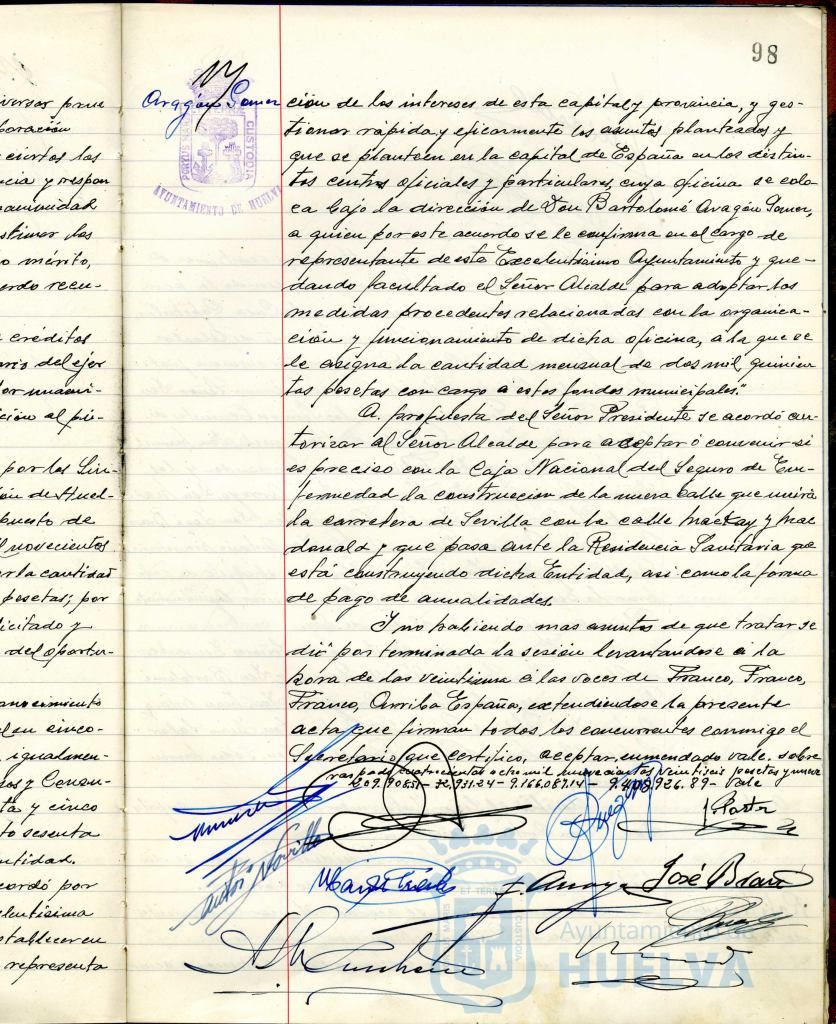 98
Aragón Gomez
PORTUS MARIS
CUSTODIA
AYUNTAMIENTO DE HUELVA
versos
boración
ciertos los
cia y respon
stimar los
o mérito,
erdo recu-
créditos
ario del ejer
or unani-
ción al
por los Sin-
ón de Huel-
puesto de
l novecientos
er la cantidad
pesetas; por
licitado y
del oportu-
conocimiento
cinco-
igualmen-
os y Censu-
ta y cinco
to sesenta
ntidad.
cordó por
lentísima
establecer en
representa
ción de los intereses de esta capital y provincia, y ges-
tionar rápida y eficazmente los asuntos planteados y
que se planteen en la capital de España en los distin-
tos centros oficiales y particulares, cuya oficina se colo-
ca bajo la dirección de Don Bartolomé Aragón Gomez,
a quien por este acuerdo se le confirma en el cargo de
representante de este Excelentísimo Ayuntamiento y que-
dando facultado el Señor Alcalde para adoptar las
medidas procedentes relacionadas con la organiza-
ción y funcionamiento de dicha oficina, a la que se
le asigna la cantidad mensual de dos mil quinien
tas pesetas con cargo a estos fondos municipales."
A propuesta del Señor Presidente se acordó au-
torizar al Señor Alcalde para aceptar ó convenir si
es preciso con la Caja Nacional del Seguro de En-
fermedad la construccion de la nueva calle que unirá
la carretera de Sevilla con la calle Mackay y Mac
donald y que pasa ante la Residencia Sanitaria que
está construyendo dicha Entidad, asi como la forma
de pago de anualidades.
Y no habiendo mas asuntos de que tratar se
dió por terminada la sesión levantandose a la
hora de las veintiuna a las voces de Franco, Franco,
Franco, Arriba España, extendiendose la presente
acta que firman todos los concurrentes conmigo el
Secretario que certifico, aceptar, enmendado vale. sobre
raspado, cuatrocientas ocho mil novecientas veintiseis pesetas y nueve
209.908.51 - 72,931.24 - 9.166,087.14 - 9.408,926.89 - Vale
José Bravo
F. Anaya
Ayuntamiento de
HUELVA
CUSTODIA